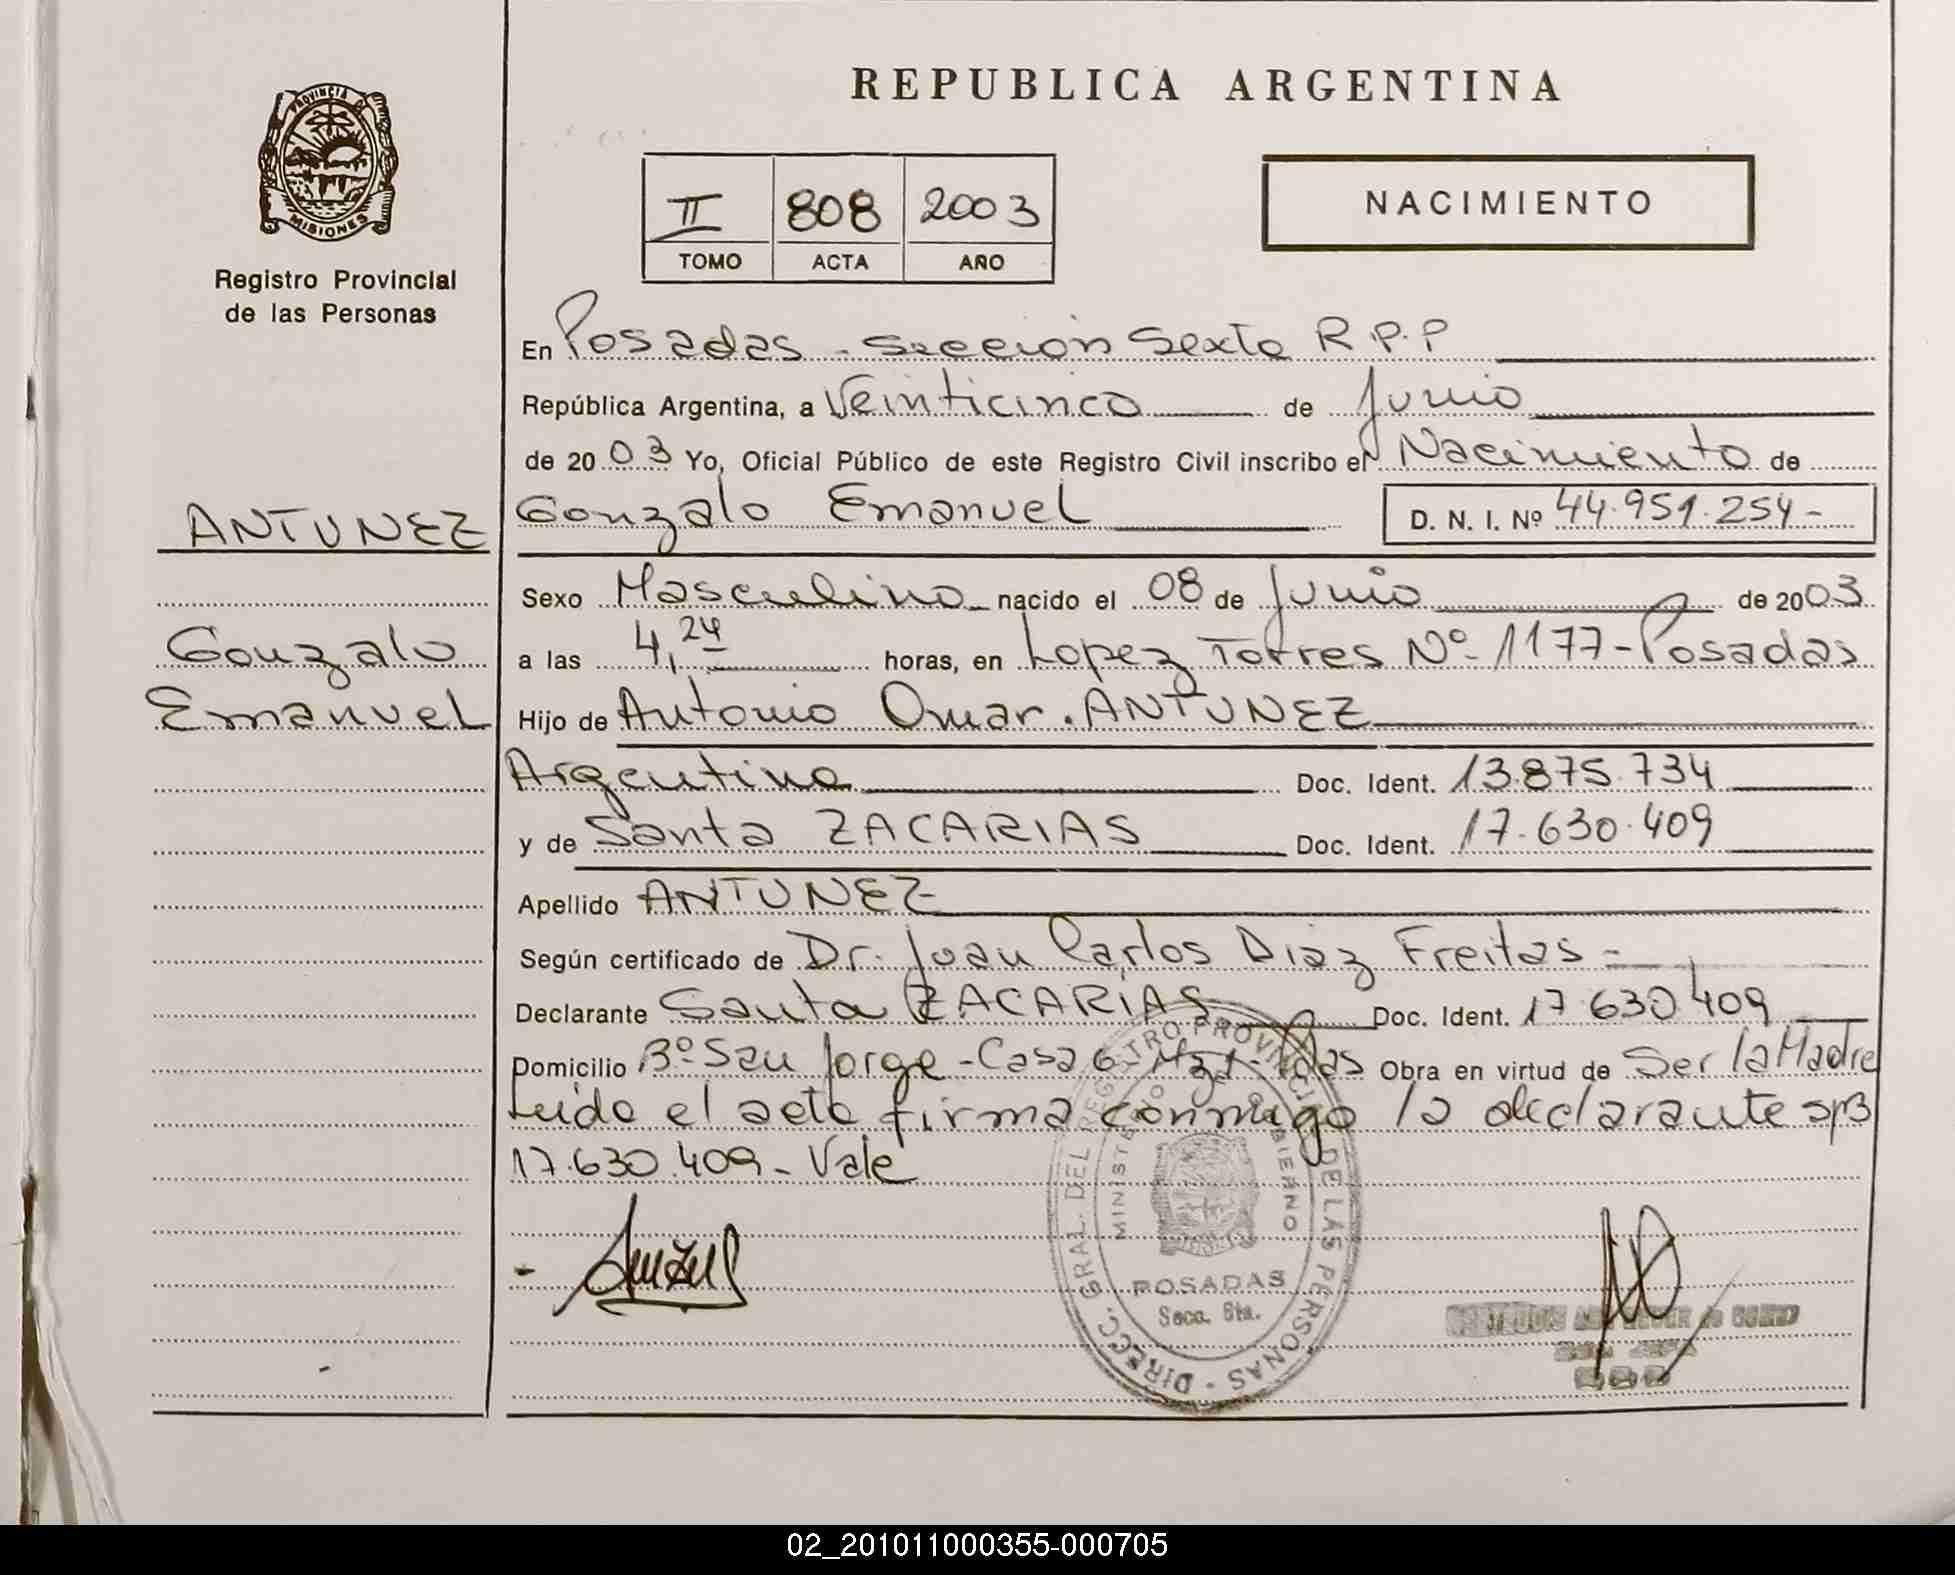 REPUBLICA ARGENTINA
PROVINCIA DE
MISIONES
Registro Provincial
de las Personas
II 808 2003
TOMO ACTA AÑO
NACIMIENTO
En Posadas - Sección Sexta R.P.P
República Argentina, a Veinticinco de Junio
de 2003 Yo, Oficial Público de este Registro Civil inscribo el Nacimiento de
Gonzalo Emanuel D. N. I. Nº 44.951.254-
ANTUNEZ
Gonzalo
Emanuel
Sexo Masculino nacido el 08 de Junio de 2003
a las 4,24 horas, en Lopez Torres Nº 1177-Posadas
Hijo de Antonio Omar. ANTUNEZ
Argentina Doc. Ident. 13.875.734
y de Santa ZACARIAS Doc. Ident. 17.630.409
Apellido ANTUNEZ
Según certificado de Dr. Juan Carlos Diaz Freitas -
Declarante Santa ZACARIAS Doc. Ident. 17.630.409
Domicilio Bº San Jorge - Casa 6 - Mz 1 - Pdas Obra en virtud de Ser la Madre
Leida el acta firma conmigo la declarante s/B
17.630.409 - Vale
DIRECC. GRAL. DEL REGISTRO PROVINCIAL DE LAS PERSONAS
MINISTERIO DE GOBIERNO
POSADAS
Secc. 6ta.
02_201011000355-000705